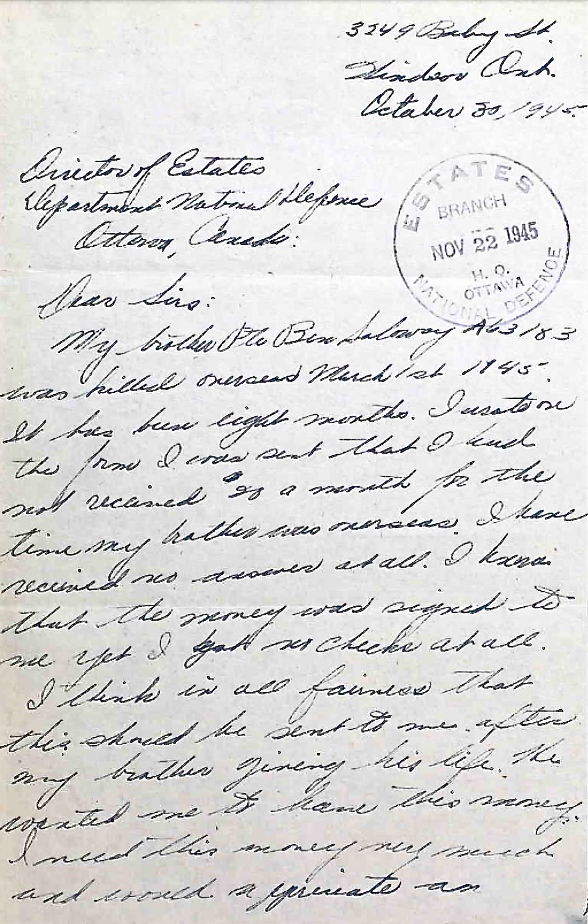 3249 Baby St.
Windsor Ont.
October 30, 1945.
Director of Estates
Department National Defence
Ottawa, Canada:
ESTATES
BRANCH
NOV 22 1945
H. Q.
OTTAWA
NATIONAL DEFENCE
Dear Sirs:
My brother Pte Ben Saloway A63183
was killed overseas March 1st 1945.
It has been eight months. I wrote on
the form I was sent that I had
not received $20 a month for the
time my brother was overseas. I have
received no answer at all. I know
that the money was signed to
me yet I got no checks at all.
I think in all fairness that
this should be sent to me after
my brother giving his life. He
wanted me to have this money.
I need this money very much
and would appreciate an